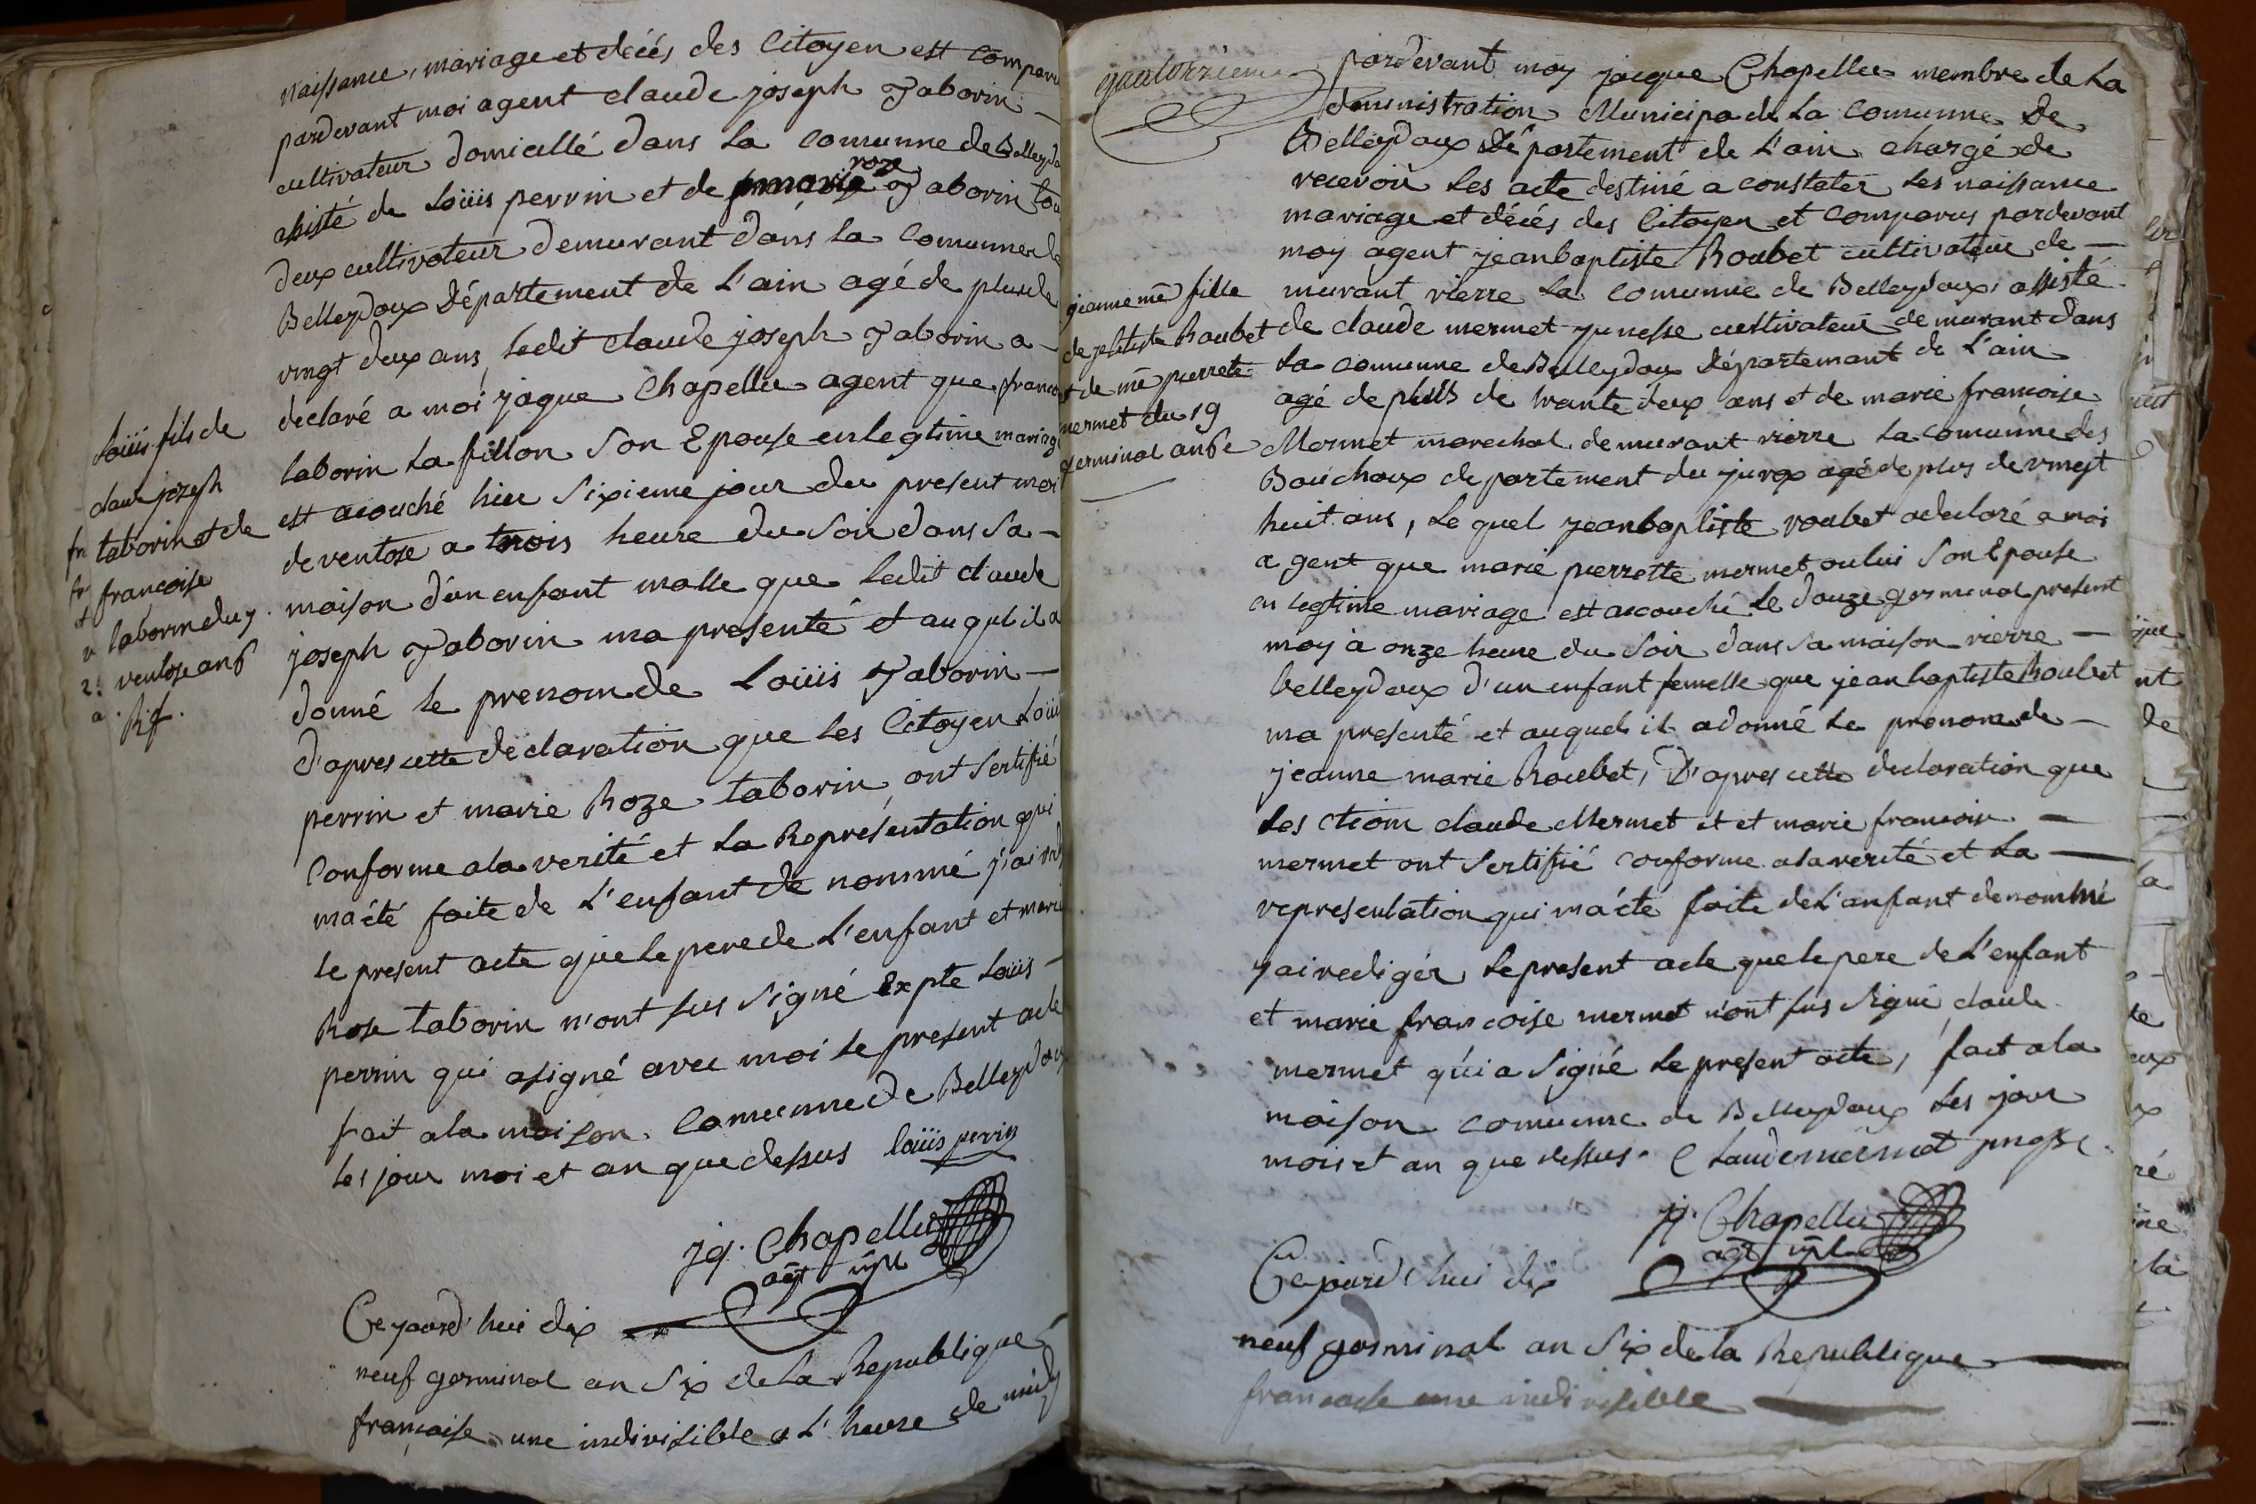 naissance, mariage et décés des Citoyen est comparu
pardevant moi agent claude joseph Taborin
cultivateur domicillé dans la comunne de Belleydo
assisté de Loüis perrin et de marie roze Taborin tou
deux cultivateur demurant dans la comunne de
Belleydoux Département de L'ain agé de plus de
vingt deux ans, ledit claude joseph Taborin a
declaré a moi jaque Chapellu agent que franco
taborin La fillon Son Epouse en legtime mariage
est acouché hier Sixieme jour du present moi
de ventose a trois heure du Soir dans sa
maison d'un enfant malle que ledit claude
joseph Taborin ma presenté et auquel il a
donné le prenom de Loüis Taborin
d'apres cette declaration que les Citoyen Loüi
perrin et marie Roze taborin ont Sertifié
Conforme a la verité et la Représentation qui
ma été faite de L'enfant de nommé j'ai red
le present acte que le pere de L'enfant et mari
Rose taborin n'ont sus Signé Expte Loüis
perrin qui a signé avec moi le present acte
fait a la maison Comunne de Belleydoux
les jour moi et an que dessus loüis perrin
jq. Chapellu
agt mpl
Cejourd'hui dix
neuf germinal an Six de La Republique
française une indivisible a L'heure de midy
Loüis fils de
claude joseph
taborin et de
francoise
taborin du 7
ventose an 6
quatorzieme
pardevant moy jacque Chapellu membre de La
dministration Municipa de La comunne De
Belleydoux Département de L'ain chargé de
recevoir les acte destiné a constater les naissance
mariage et décés des Citoyen et comparus pardevant
moy agent jeanbaptiste Roubet cultivateur de
murant rierre La comunne de Belleydoux, assisté
de claude mermet junesse cultivateur demurant dans
La comunne de Belleydoux Département de L'ain
agé de plus de trante deux ans et de marie francoise
Mermet marechal demurant rierre La comunne des
Bouchoux departement du jura agé de plus de vingt
huit ans, Le quel jeanbaptiste roubet a declaré a moi
agent que marie pierrette mermet oului Son Epouse
en legtime mariage est accouché le douze germinal present
moy a onze heure du Soir dans sa maison rierre
belleydoux d'un enfant femelle que jean baptiste Roubet
ma presenté et auquel il a donné Le prenom de
jeanne marie Roubet, D'apres cette declaration que
Les ctioin claude Mermet et et marie francoise
mermet ont Sertifié conforme a la verité et La
representation qui ma été faite de L'anfant denommé
jai redigér Le present acte que le pere de L'enfant
et marie francoise mermet n'ont sus Signé, claude
mermet qui a Signé Le present acte, fait a la
maison comunne de Belleydoux Les jour
mois et an que dessus. Claude mermet junesse
jq. Chapellu
agt mpl
Cejourd'hui dix
neuf germinal an Six de la Republique
francaise une indivisible
jeanne mie fille
de jbtiste Roubet
et de mie pierrete
mermet du 19
germinal an 6e